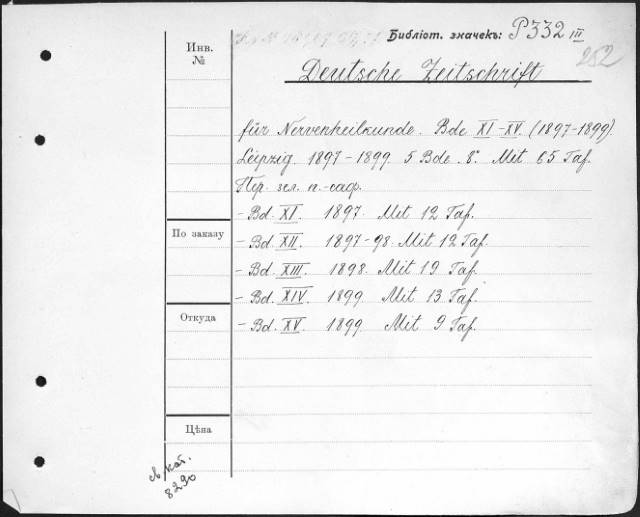 Библіот. значекъ: P332 III
252
Инв.
№
Deutsche Zeitschrift
für Nervenheilkunde. Bde XI-XV. (1897-1899).
Leipzig. 1897-1899. 5 Bde. 8°. Mit 65 Taf.
Пер. зел. п.-саф.
- Bd. XI. 1897. Mit 12 Taf.
По заказу
- Bd. XII. 1897-98. Mit 12 Taf.
- Bd. XIII. 1898. Mit 19 Taf.
- Bd. XIV. 1899. Mit 13 Taf.
Откуда
- Bd. XV. 1899. Mit 9 Taf.
Цѣна
кат.
8290